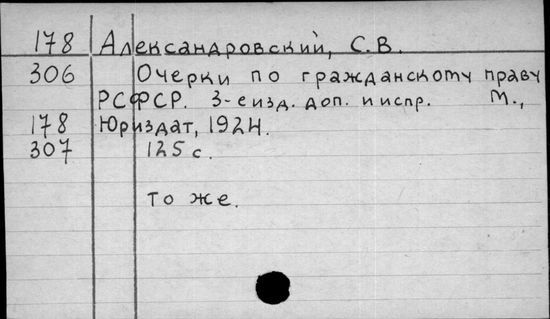 178 Александровский, С.В.
306 Очерки по гражданскому праву
РСФСР. 3-е изд. доп. и испр. М.,
178 Юриздат, 1924.
307 125 с.
то же.